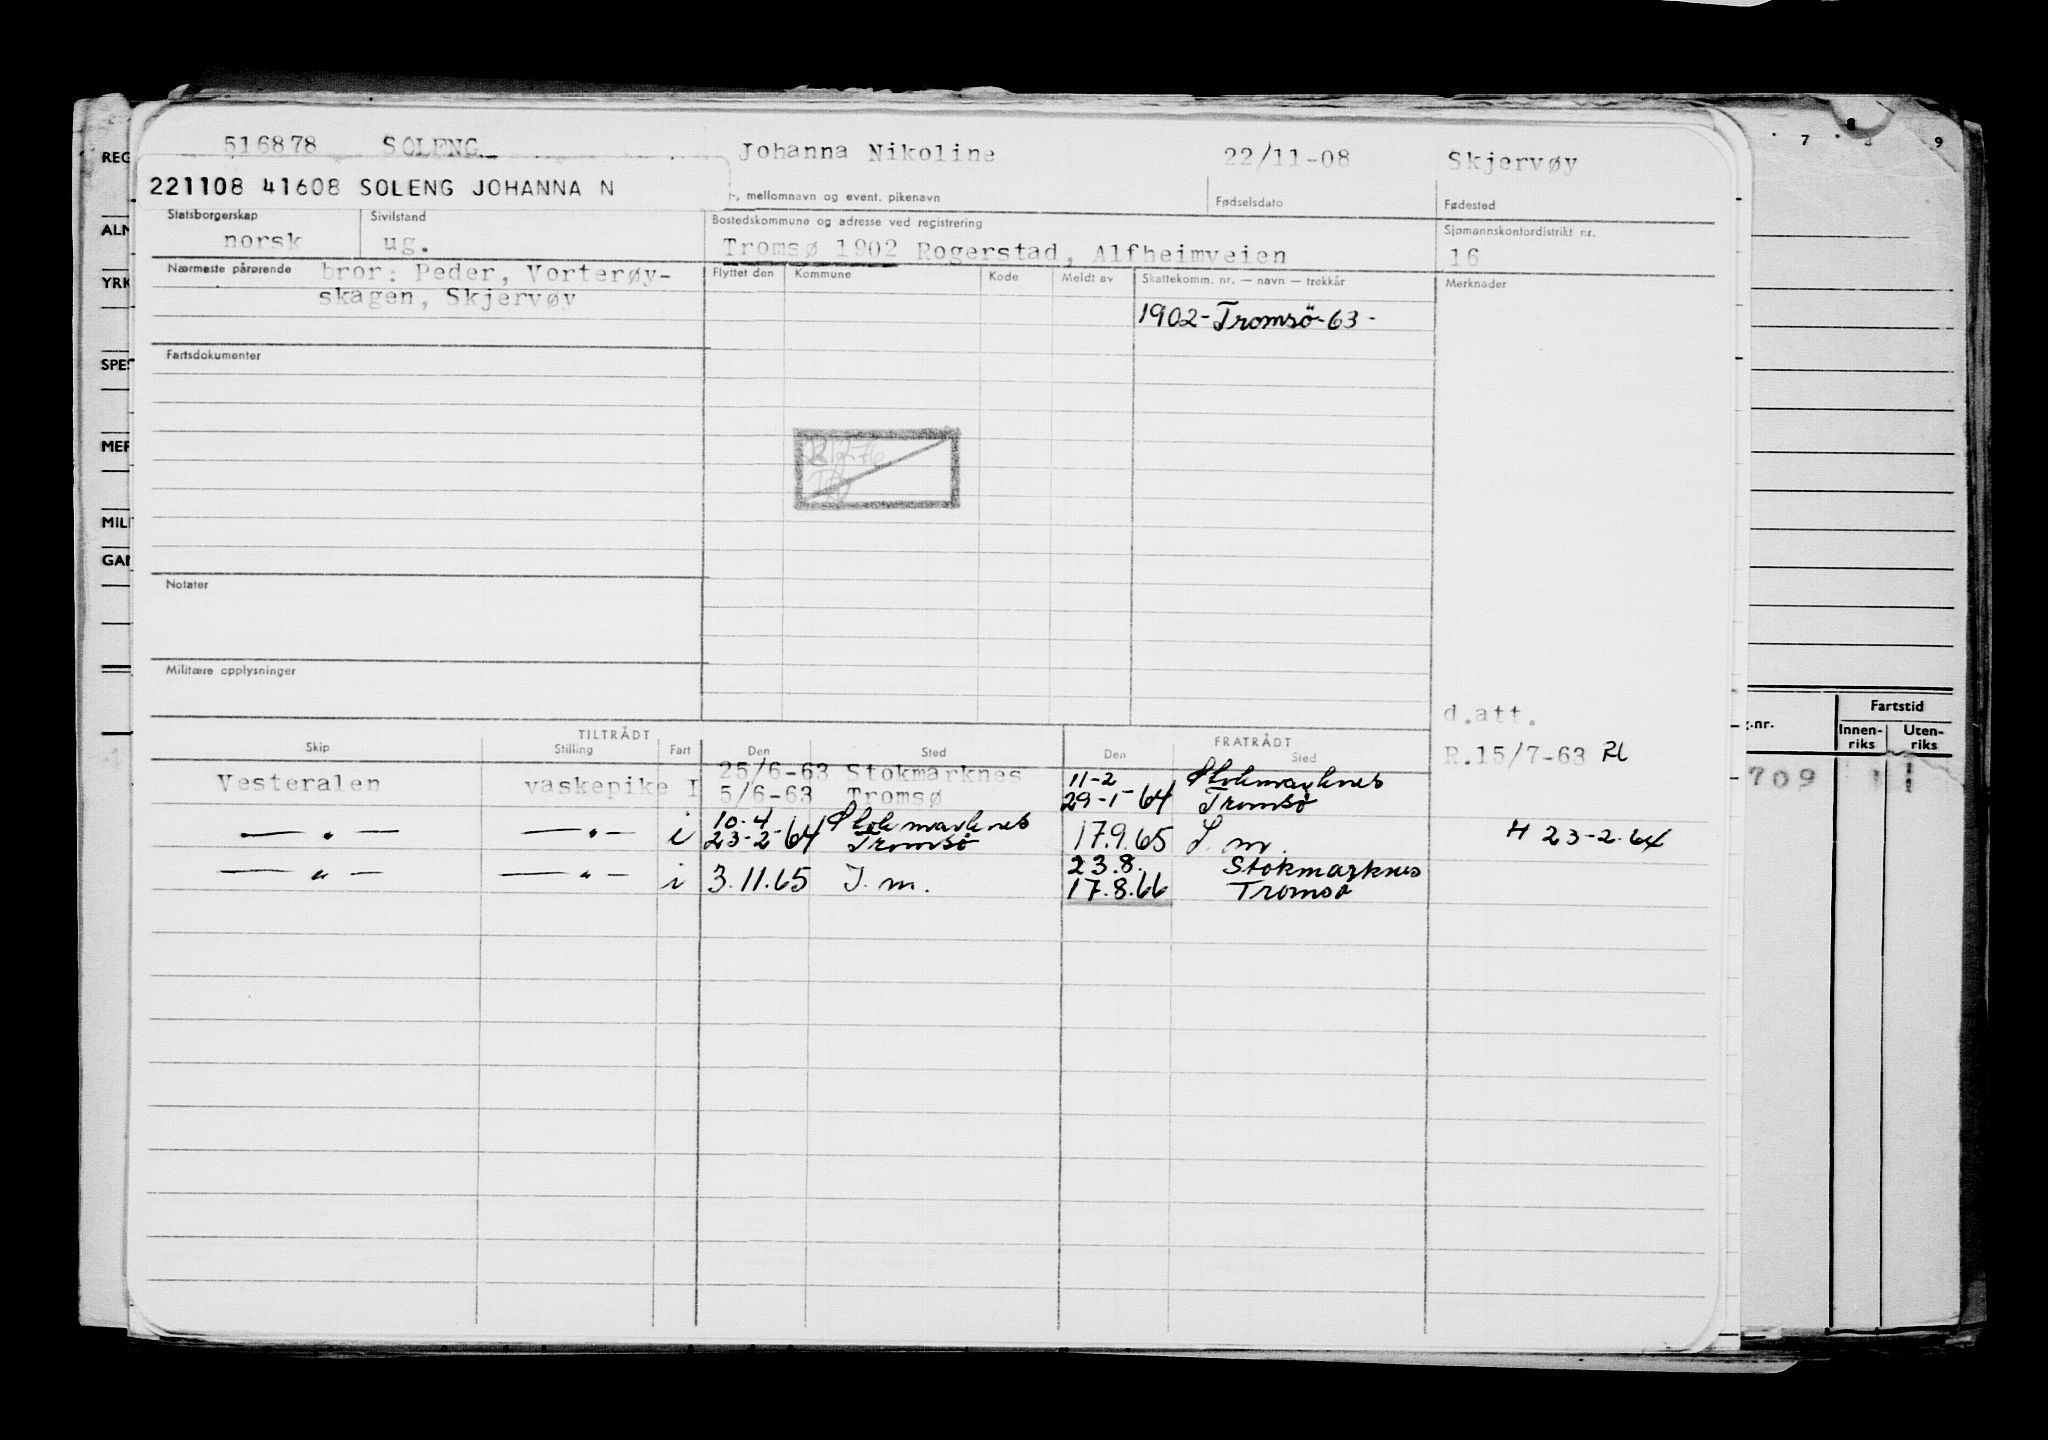 516878 SOLENG Johanna Nikoline 22/11-08 Skjervøy
221108 41608 SOLENG JOHANNA N
, mellomnavn og event. pikenavn Fødselsdato Fødested
Statsborgerskap Sivilstand Bostedskommune og adresse ved registrering Sjømannskontordistrikt nr.
norsk ug. Tromsø 1902 Rogerstad, Alfheimveien 16
Nærmeste pårørende bror: Peder, Vorterøy-
skagen, Skjervøy
Flyttet den Kommune Kode Meldt av Skattekomm. nr. — navn — trekkår Merknader
1902-Tromsö-63-
Fartsdokumenter
Notater
Militære opplysninger
d.att.
R.15/7-63
TILTRÅDT FRATRÅDT
Skip Stilling Fart Den Sted Den Sted
25/6-63 Stokmarknes 11-2 Stokmarknes
Vesteralen vaskepike I 5/6-63 Tromsø 29-1-64 Tromsø
10-4 Stokmarknes
— " — — " — i 23-2-64 Tromsø 17.9.65 S. m. H 23-2-64
23.8. Stokmarknes
— " — — " — i 3.11.65 S. m. 17.8.66 Tromsø
REG
ALN
YRK
SPES
MER
MILI
GAN
7 8 9
g.nr. Fartstid
Innen-
riks
Uten-
riks
709